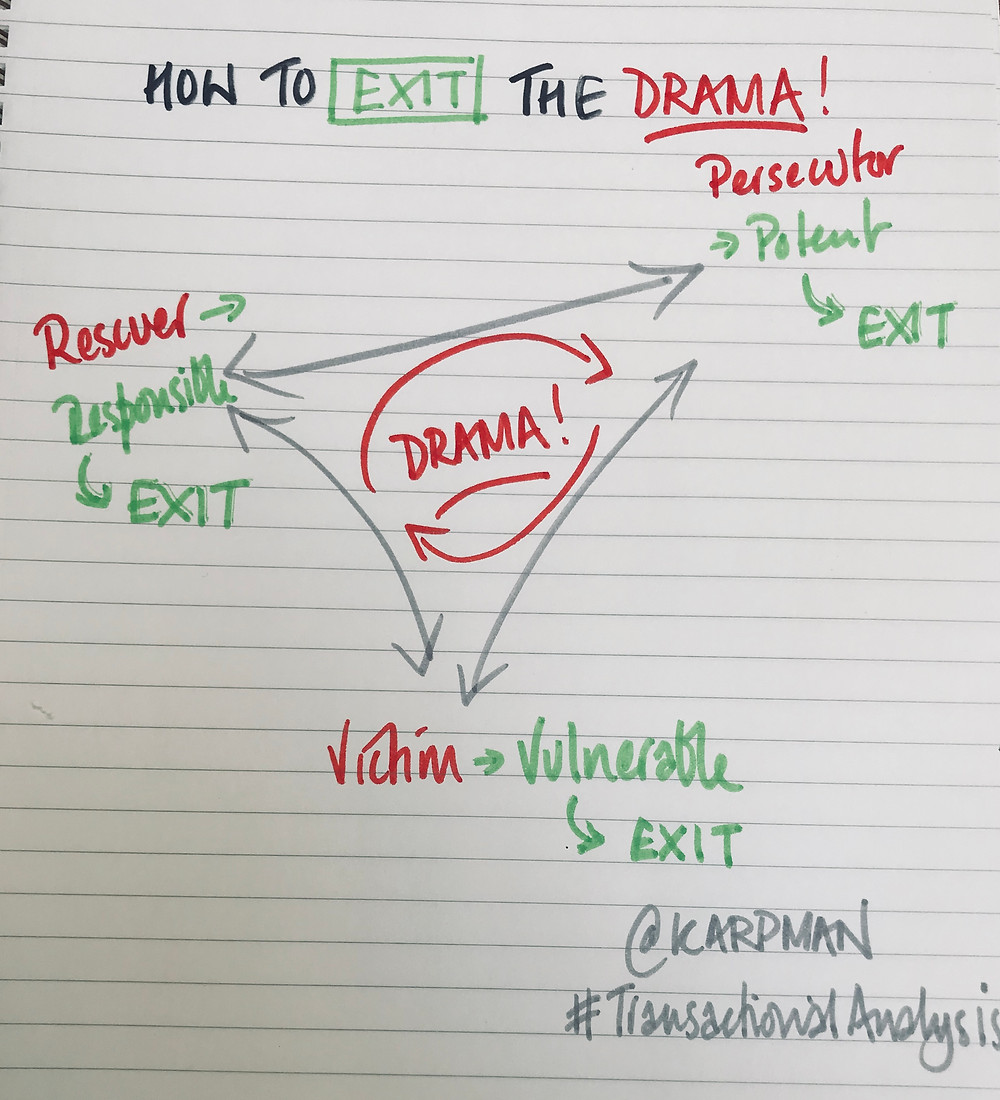 HOW TO EXIT THE DRAMA!
Persecutor
→ Potent
EXIT
Rescuer →
Responsible
EXIT
DRAMA!
Victim → Vulnerable
EXIT
@KARPMAN
#TransactionalAnalysis